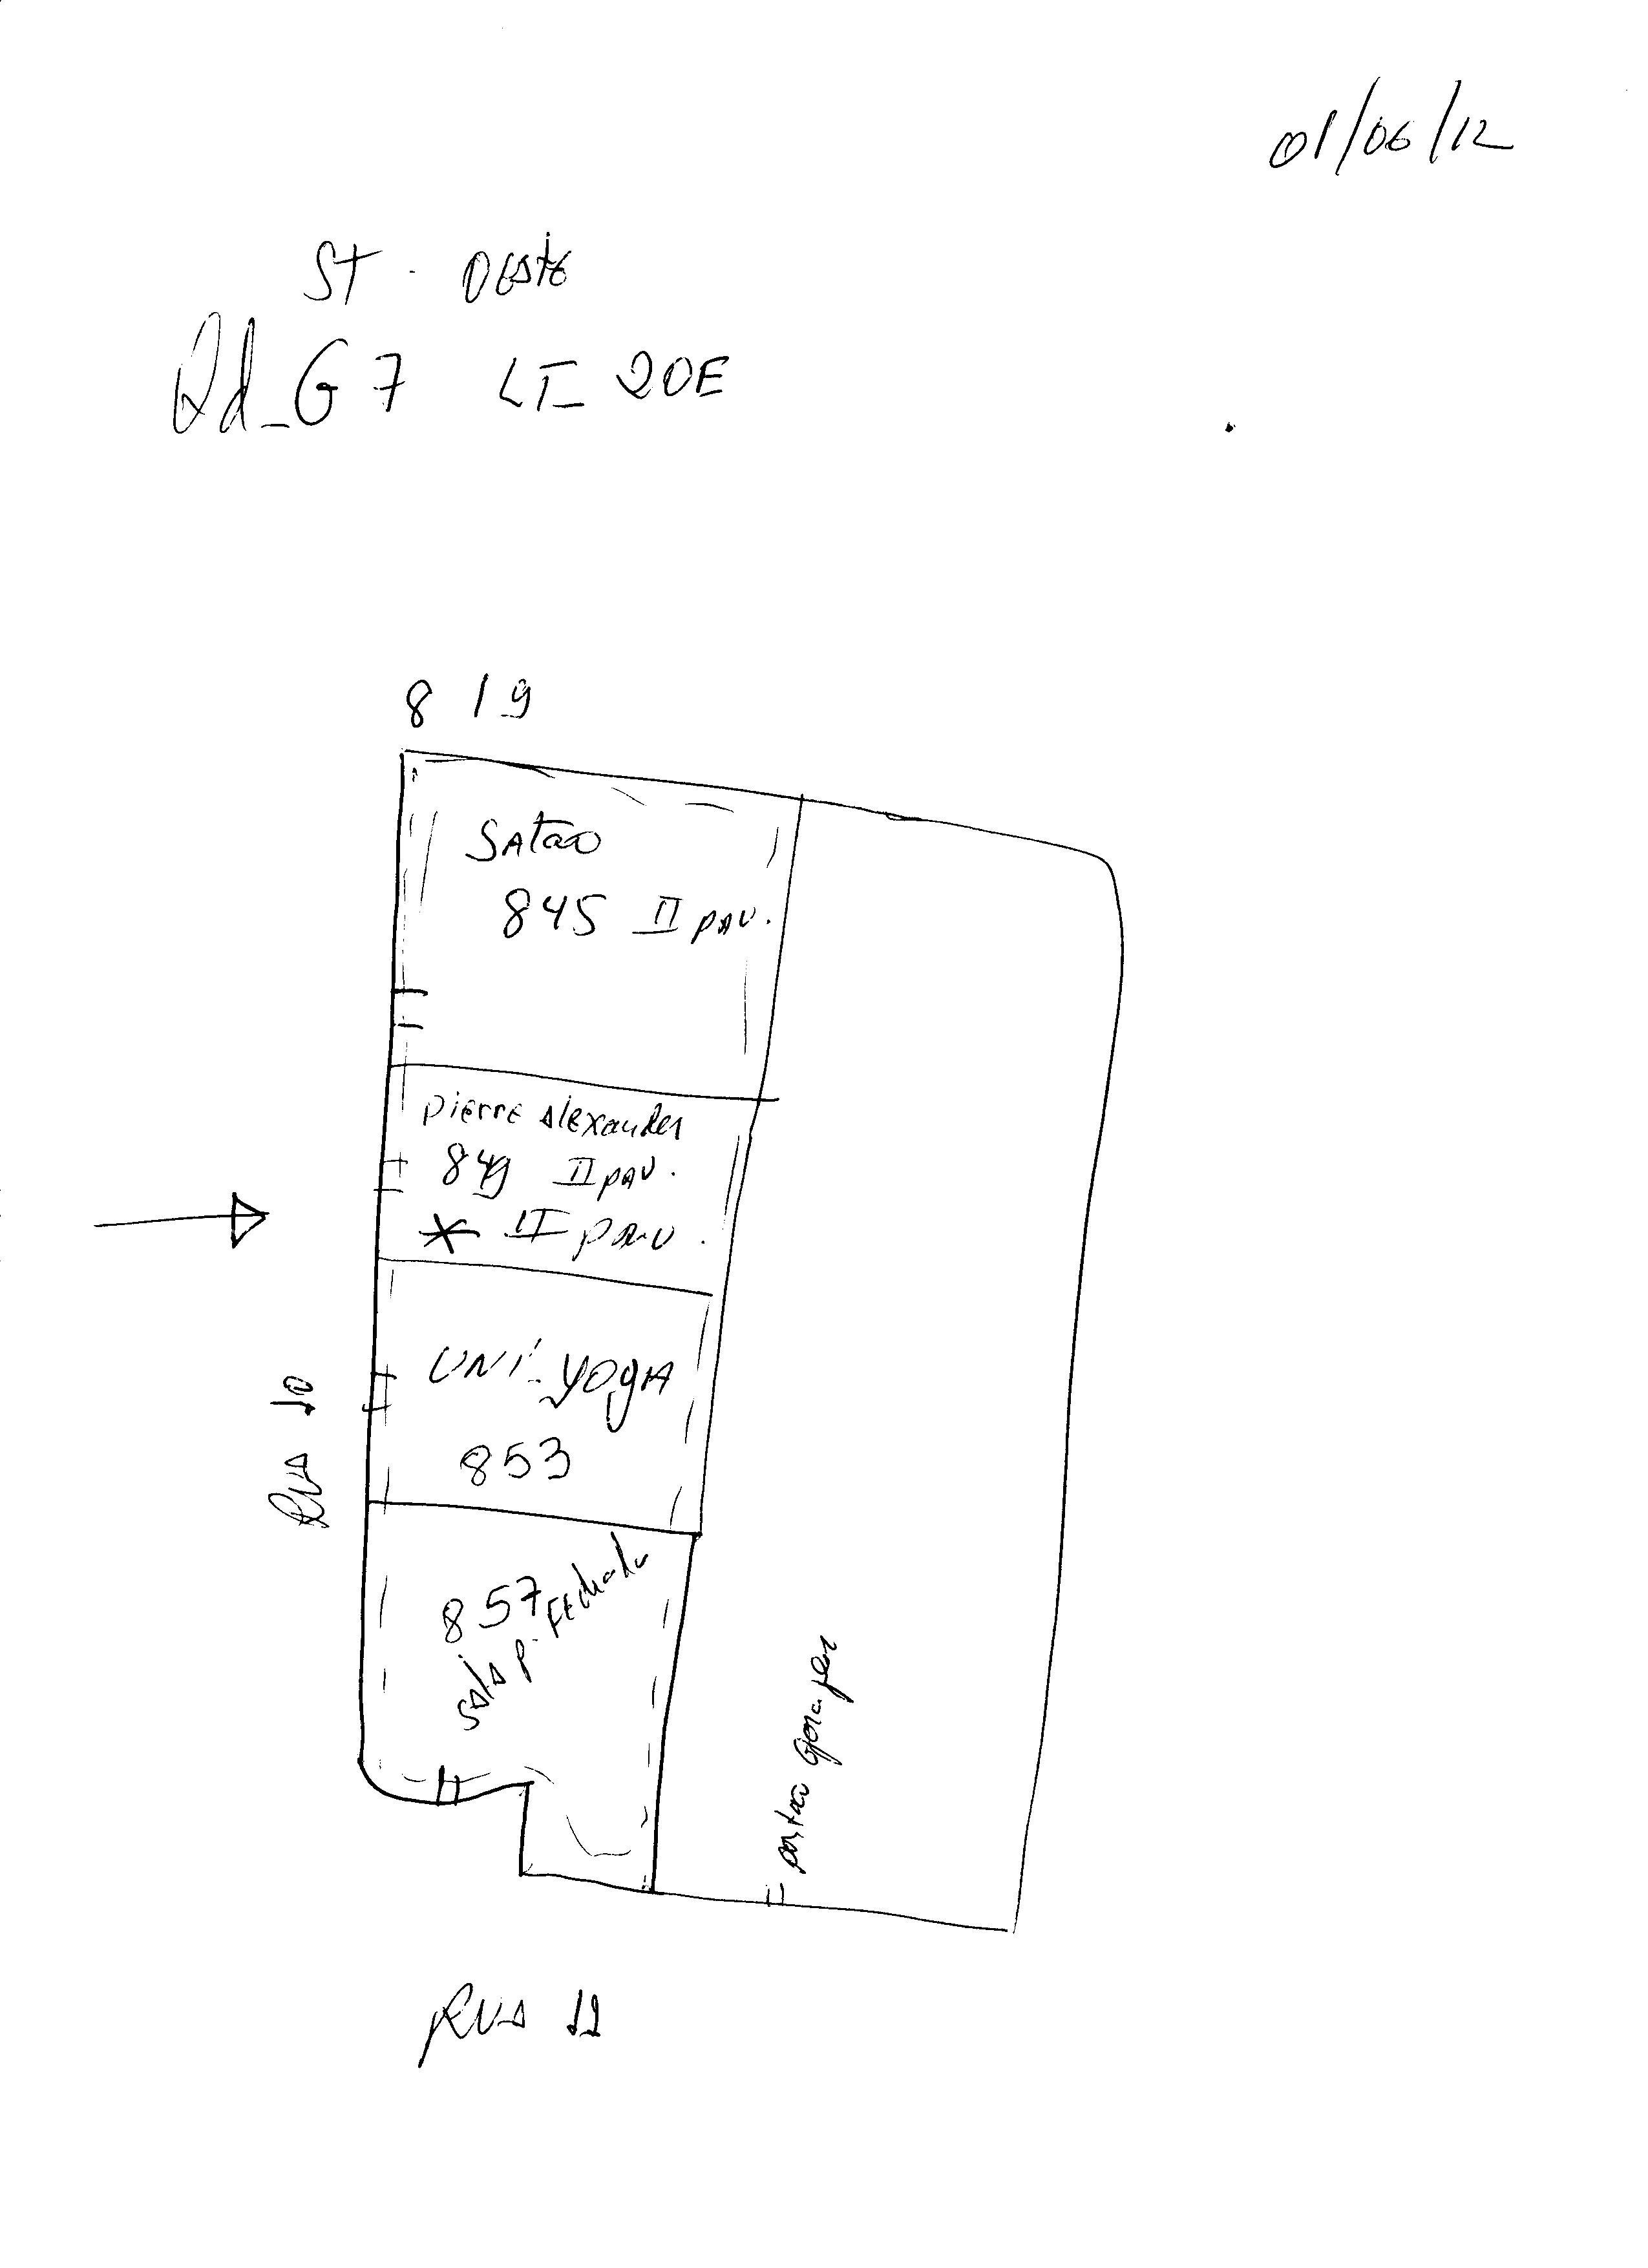 01/06/12
ST. OESTE
Qd_G7 LT_20E
819
SAtão
845 II pAv.
pierre Alexander
849 II pAv.
* II pav.
UNI-YOGA
853
RUA 10
857
sala p. Fechada
portão Garagem
RUA 11